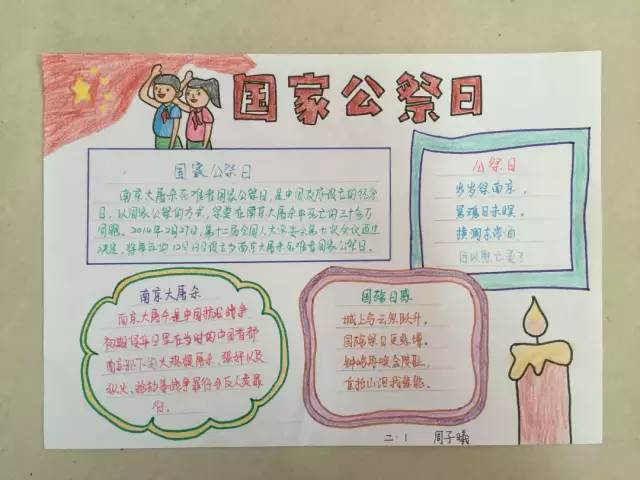 国家公祭日
国家公祭日
南京大屠杀死难者国家公祭日,是中国政府设立的纪念
日,以国家公祭的方式,祭奠在南京大屠杀中死亡的三十多万
同胞。2014年2月27日,第十二届全国人大常委会第七次会议通过
决定,将每年的12月13日设立为南京大屠杀死难者国家公祭日。
公祭日
岁岁祭南京,
冤魂日未暝。
南京大屠杀
南京大屠杀是中国抗日战争
初期侵华日军在当时的中国首都
南京犯下的大规模屠杀、强奸以及
纵火、抢劫等战争罪行与反人类罪
行。
国殇日感
城上乌云
国殇祭日
二·1 周子曦